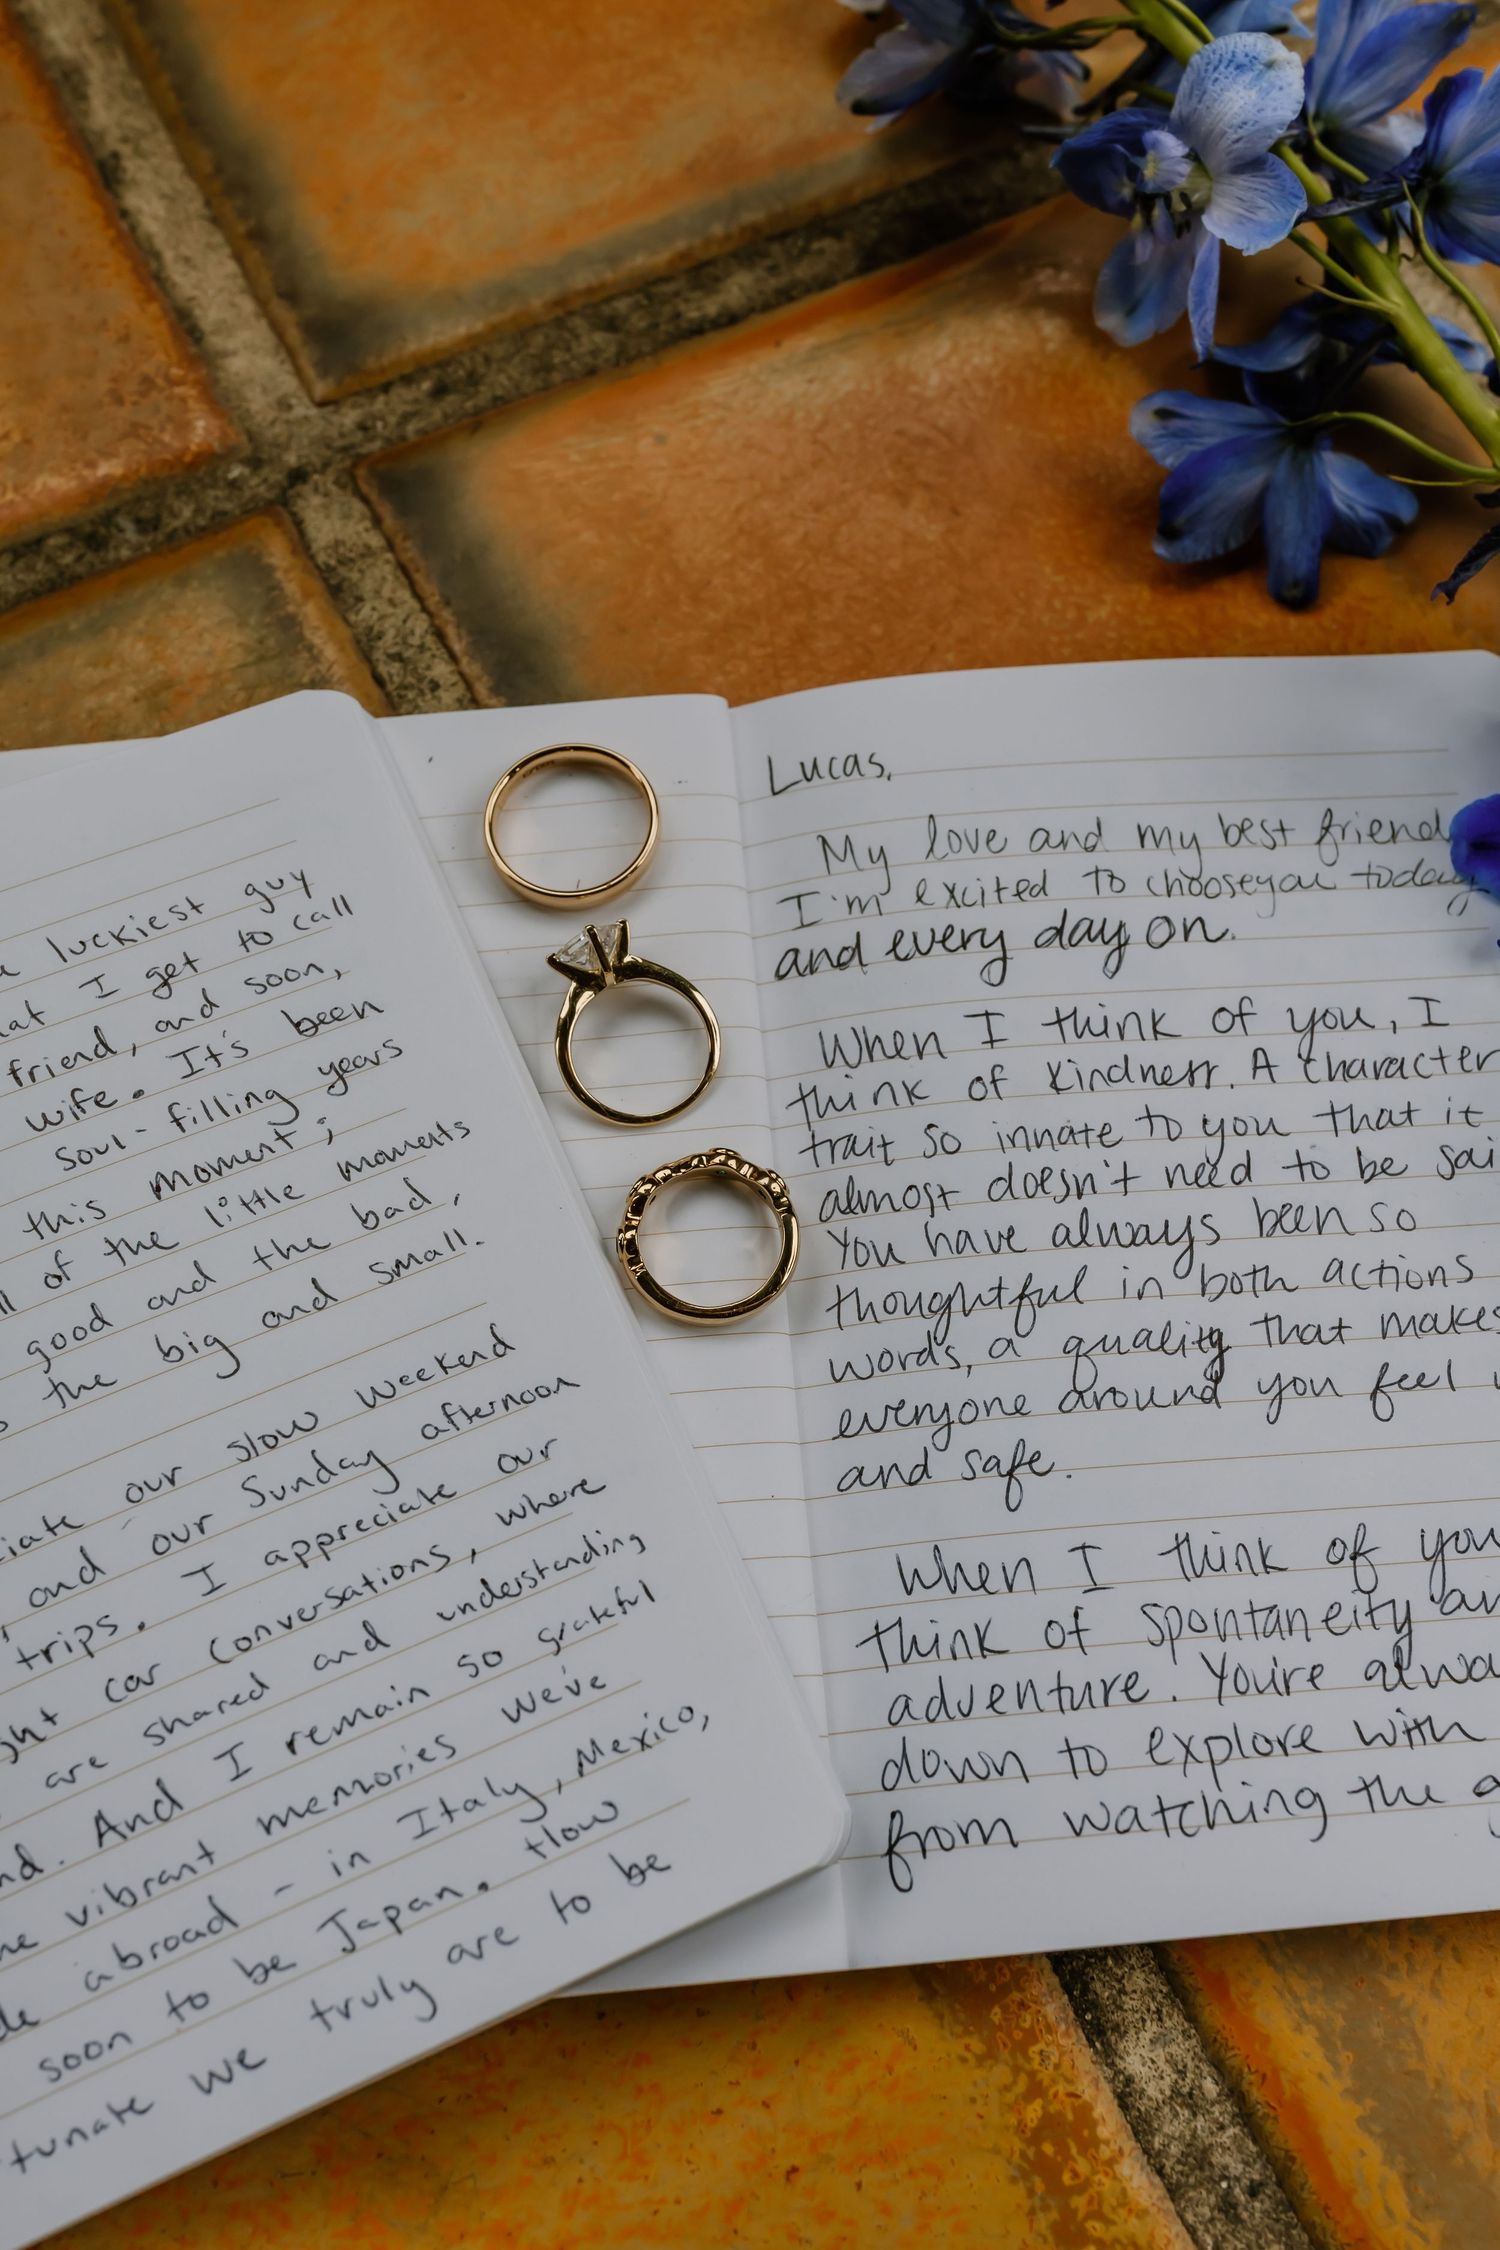 luckiest guy
I get to call
friend, and soon,
wife. It's been
soul-filling years
this moment;
of the little moments
good and the bad,
the big and small.
our slow weekend
and our Sunday afternoon
trips. I appreciate our
car conversations, where
are shared and understanding
And I remain so grateful
vibrant memories we've
abroad - in Italy, Mexico,
soon to be Japan. How
we truly are to be
Lucas,
My love and my best friend
I'm excited to choose you today
and every day on.
When I think of you, I
think of kindness. A character
trait so innate to you that it
almost doesn't need to be sai
You have always been so
thoughtful in both actions
words, a quality that makes
everyone around you feel
and safe.
When I think of you
think of spontaneity an
adventure. You're alwa
down to explore with
from watching the